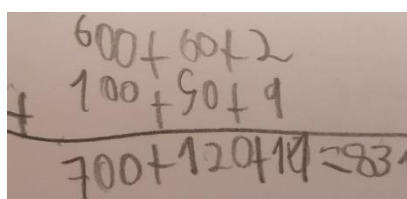 600+60+2
+ 100+50+9
700+120+11=831